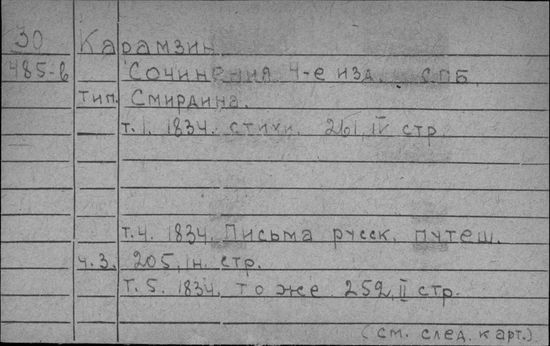 30 Карамзин.
485-6 Сочинения 4-е изд. СПБ.
тип. Смирдина.
т.1. 1834. стихи. 261, IV стр.
т.4. 1834. Письма русск. путеш.
ч.3. 205, 1н. стр.
т.5. 1834. то же 252, II стр.
(см. след. карт.)